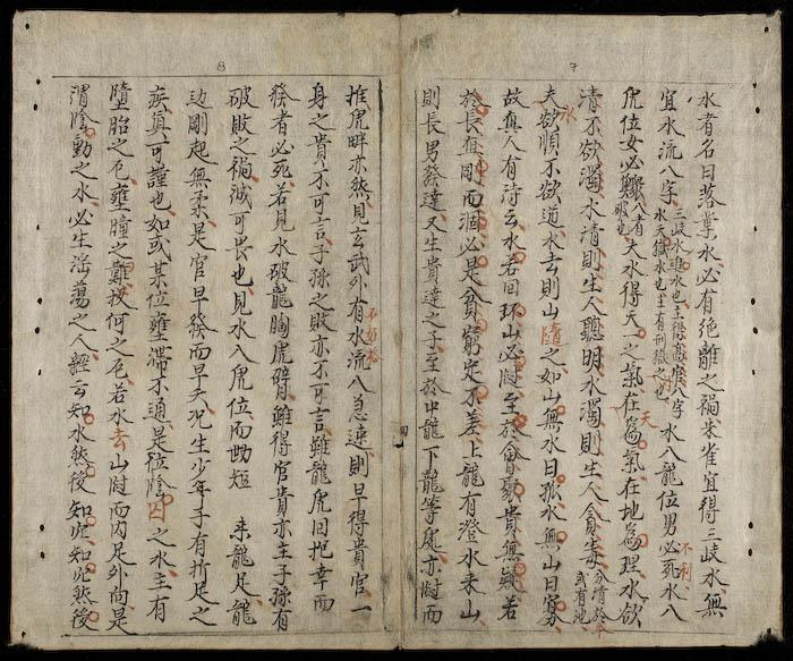 7
水者名曰落業水必有絶離之禍朱雀宜得三岐水無
宜水流八字
三岐水進水也主得高摩八字
水天獄水也主有刑獄之也
水八龍位男必死水八
不利
虎位女必艱
八有
破也
夫水得天一之氣在天為氣在地為理水欲
清不欲濁水清則生人聽明水濁則生人貪毒
分清於平
或有池
水
夫欲順不欲逆水去則山隨之如山無水曰孤水無山曰寡
故真人有诗云水若回环山必至於會貴無疑若
於長直剛而涸必是貧窮定不差上龍有澄水来山
則長男發達又生貴達之子至於中龍下龍等處亦而
8
推虎畔亦然見玄武外有水流八急速則早得貴官一
身之貴不可言子孫之敗亦不可言雖龍虎回抱幸而
發者必死若見水破龍胸虎臂雖得官貴亦主子孫有
破敗之禍誠可畏也見水入虎位而短 来龍足龍
边剛起無柔是官早發而早夭况生少年子有折足之
疾真可謹也如或某位壅滞不通是位陰囚之水主有
墮胎之厄壅瞳之難投何之厄若水去山而内足外向是
謂陰動之水必生淫蕩之人經云知水然後知穴知穴然後